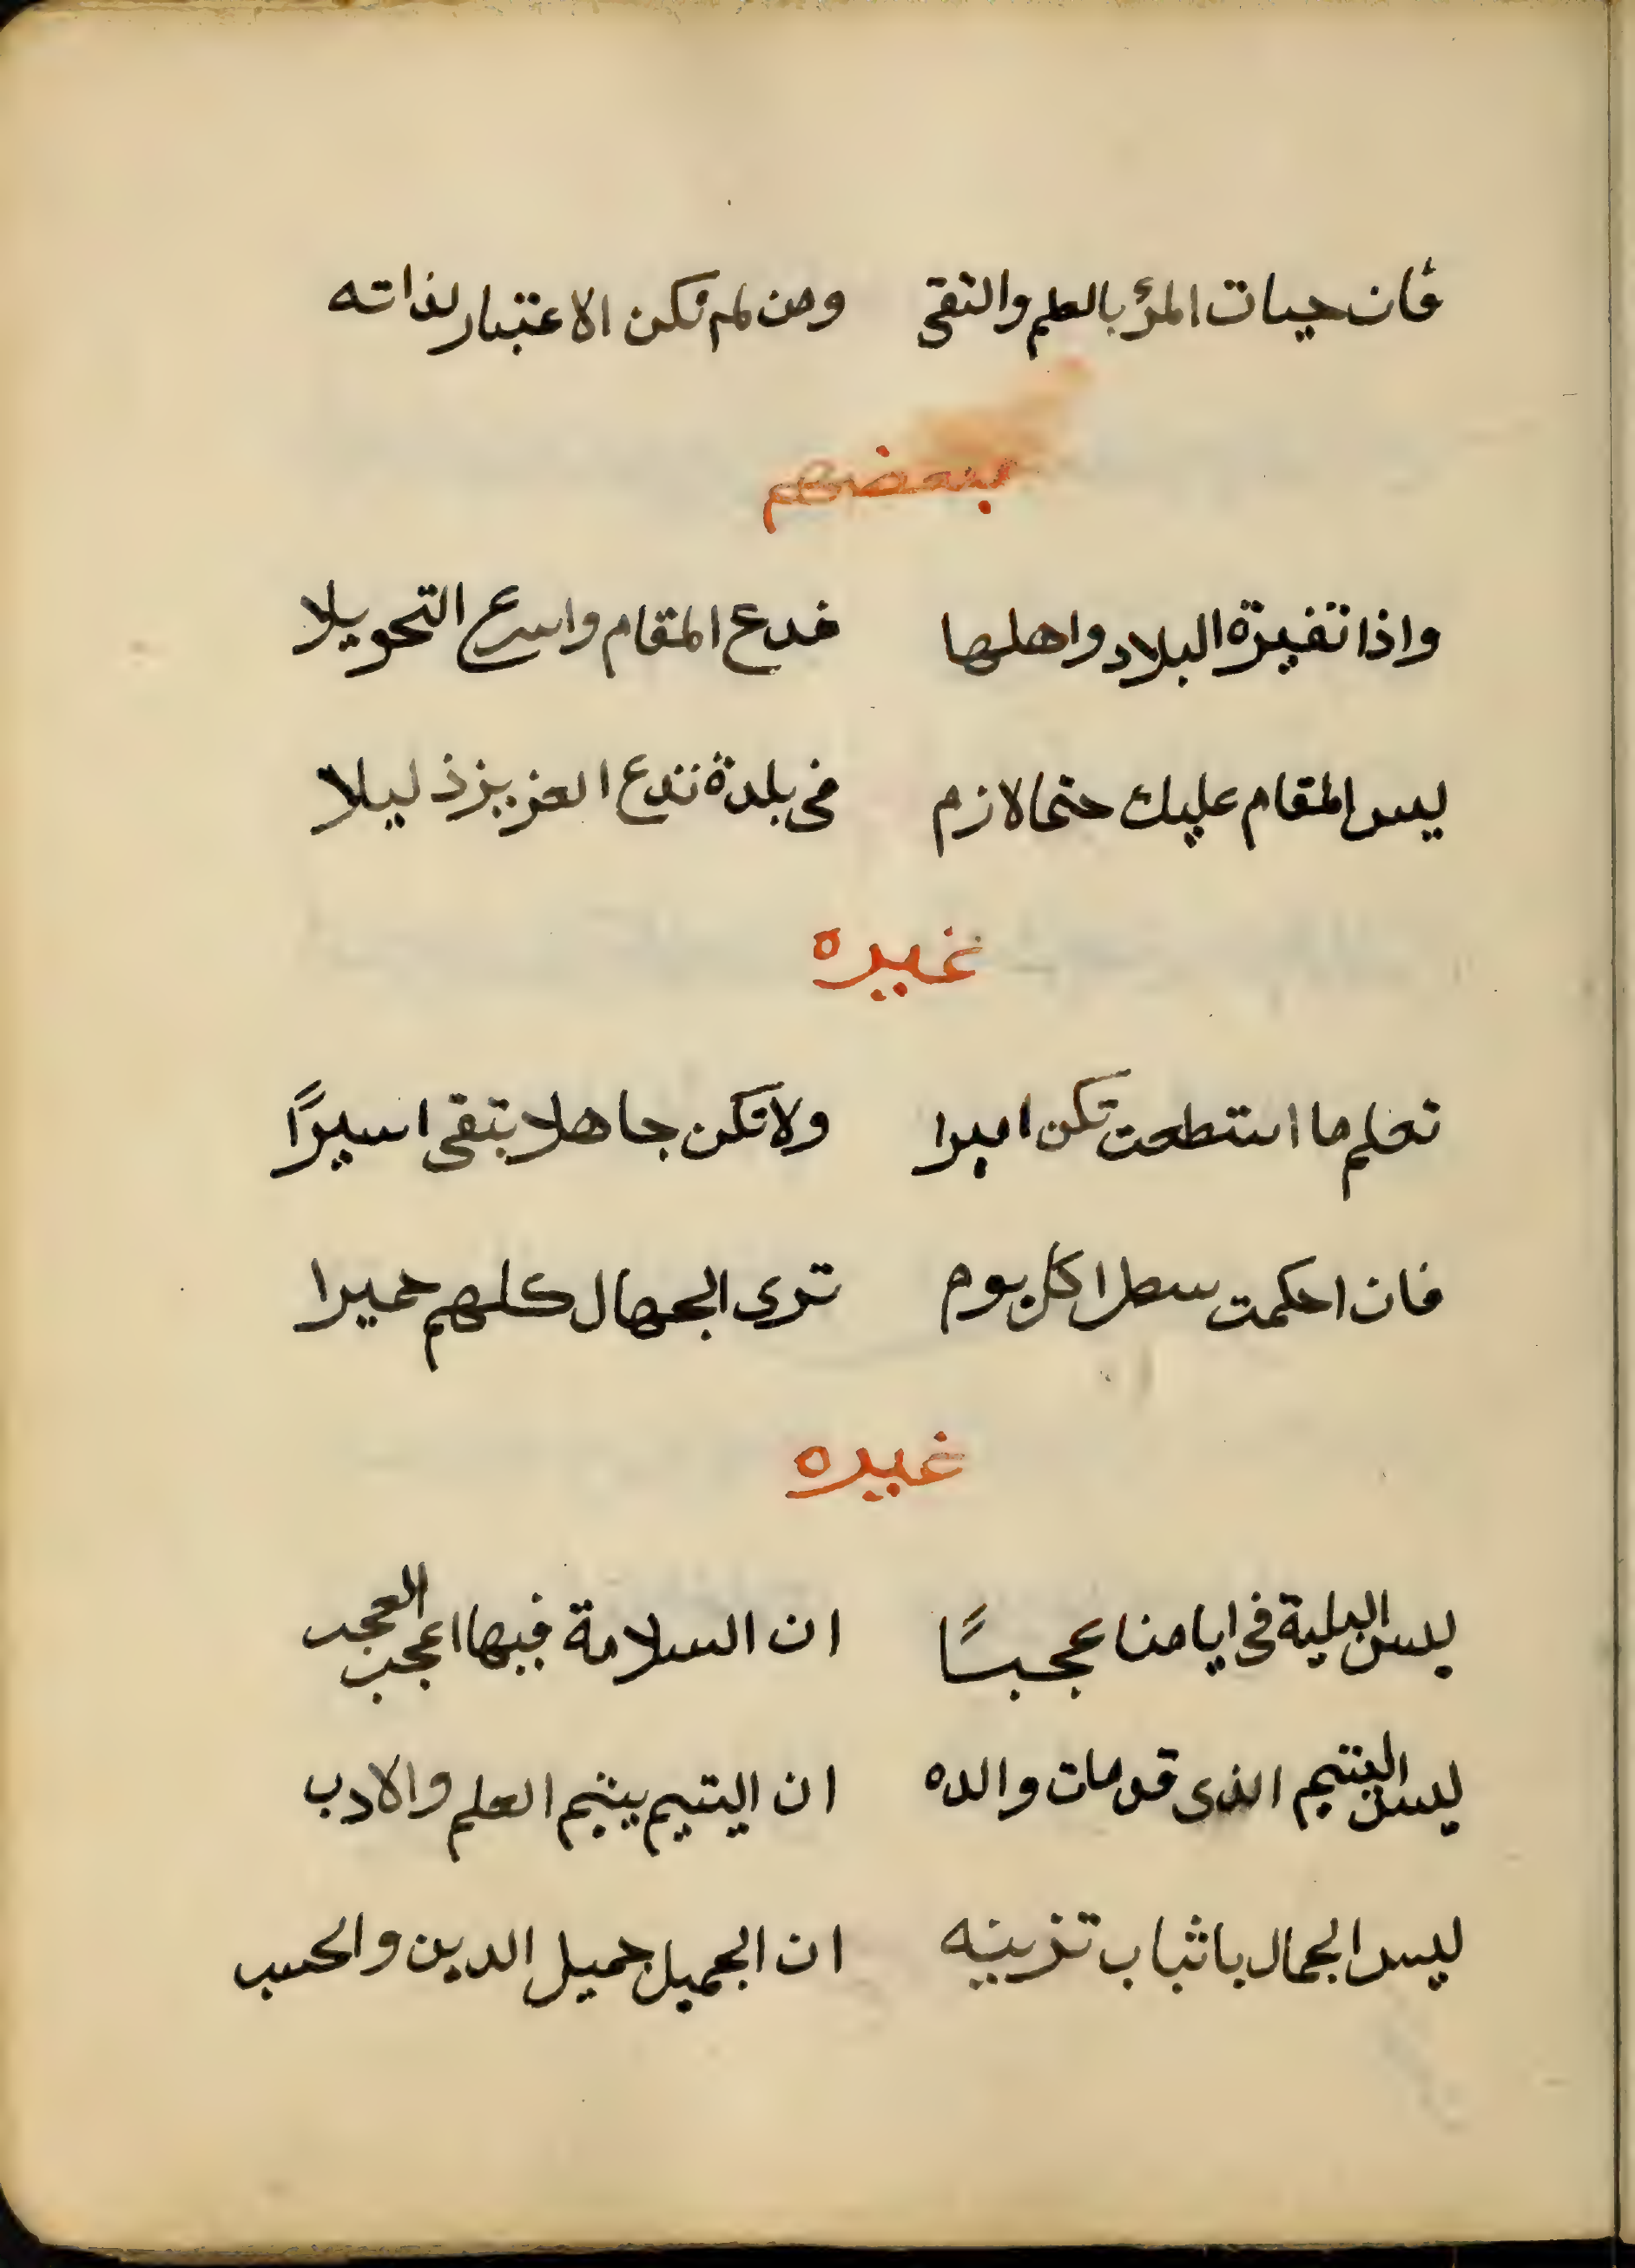 فان حيات المرؤ بالعلم والتقى ومن لم تكن الاعتبار لذاته
بعضهم
واذا تغيرة البلاد واهلها فدع المقام واسرع التحويلا
ليس المقام عليك حتما لازم فى بلدة تدع العزيز ذليلا
غيره
تعلم ما استطعت تكن اميرا ولا تكن جاهلا تبقى اسيرًا
فان احكمت سطرا كل يوم ترى الجهال كلهم حميرا
غيره
ليس البلية فى ايامنا عجبًا ان السلامة فيها اعجب العجب
ليس اليتيم الذى قد مات والده ان اليتيم يتيم العلم والادب
ليس الجمال باثياب تزينه ان الجميل جميل الدين والحسب